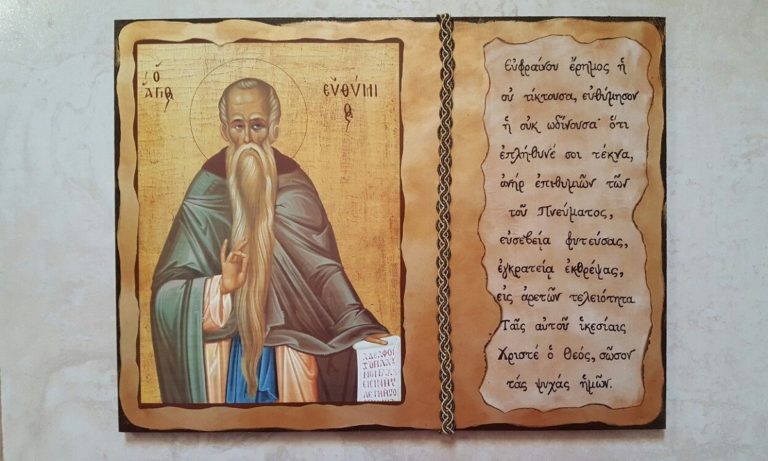 ὁ
ἍΓΙΟς
ΕΥΘΥΜΙ
ος
ΑΔΕΛΦΟΙ
Εὐφραίνου ἔρημος ἡ
οὐ τίκτουσα, εὐθύμησον
ἡ οὐκ ὠδίνουσα· ὅτι
ἐπλήθυνέ σοι τέκνα,
ἀνήρ ἐπιθυμιῶν τῶν
τοῦ Πνεύματος,
εὐσεβείᾳ φυτεύσας,
ἐγκρατείᾳ ἐκθρέψας,
εἰς ἀρετῶν τελειότητα
Ταῖς αὐτοῦ ἱκεσίαις
Χριστέ ὁ Θεός, σῶσον
τάς ψυχάς ἡμῶν.